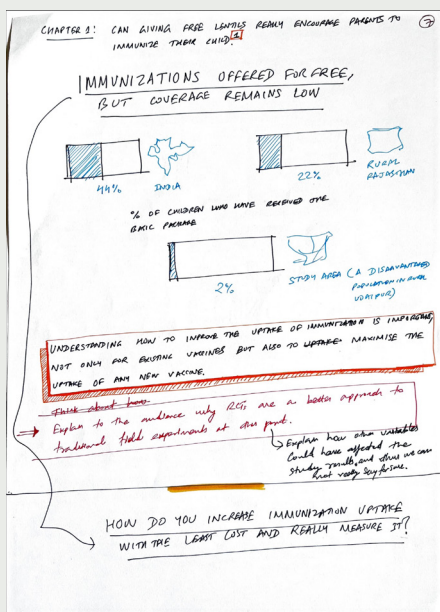 CHAPTER 1: CAN GIVING FREE LENTILS REALLY ENCOURAGE PARENTS TO
IMMUNIZE THEIR CHILD? 1
7
IMMUNIZATIONS OFFERED FOR FREE,
BUT COVERAGE REMAINS LOW
44%
INDIA
22%
RURAL
RAJASTHAN
% OF CHILDREN WHO HAVE RECEIVED THE
BASIC PACKAGE
2%
STUDY AREA (A DISADVANTAGED
POPULATION IN RURAL
UDAIPUR)
UNDERSTANDING HOW TO IMPROVE THE UPTAKE OF IMMUNIZATION IS IMPORTANT,
NOT ONLY FOR EXISTING VACCINES BUT ALSO TO UPTAKE MAXIMISE THE
UPTAKE OF ANY NEW VACCINE.
Think about how
Explain to the audience why RCTs are a better approach to
traditional field experiments at this point.
Explain how other variables
could have affected the
study results, and thus we can
not really say for sure.
HOW DO YOU INCREASE IMMUNIZATION UPTAKE
WITH THE LEAST COST AND REALLY MEASURE IT?